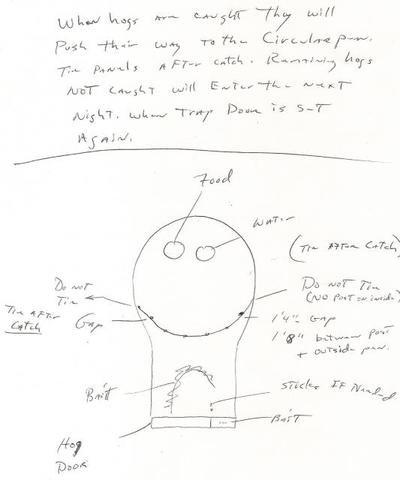 When hogs are caught they will
Push their way to the Circular pen.
Tie panels after catch. Remaining hogs
NOT caught will Enter the next
Night. when Trap Door is set
Again.
Food
Water
(Tie After Catch)
Do not
Tie
Do Not Tie
(No post on inside)
Tie After
Catch
Gap
1'4" Gap
1'8" between post
+ outside pen.
Bait
Sticks If Needed
Bait
Hog
Door